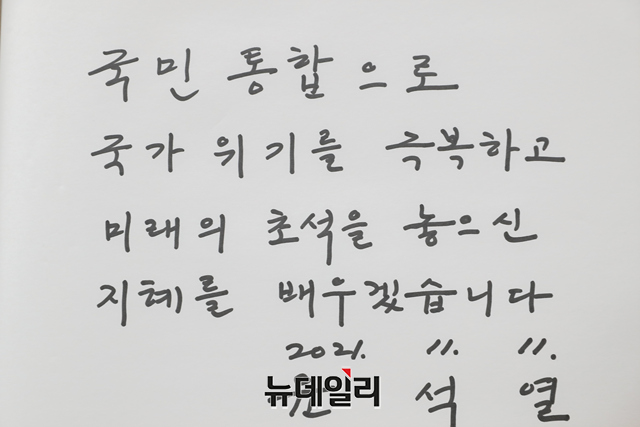 국민 통합으로
국가 위기를 극복하고
미래의 초석을 놓으신
지혜를 배우겠습니다
2021. 11. 11.
석 열
뉴데일리